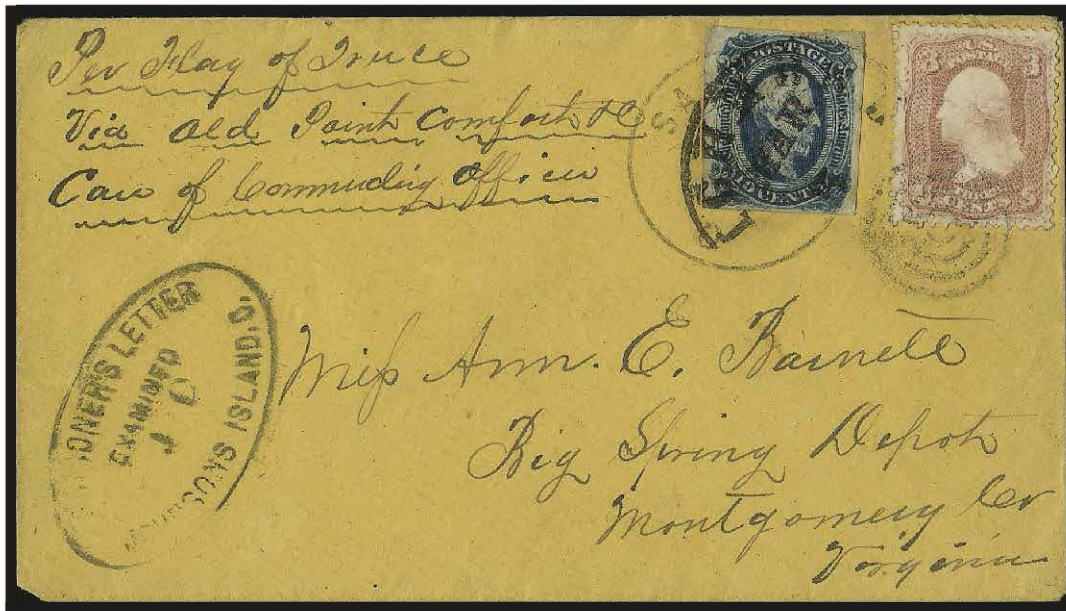 Per Flag of Truce
Via Old Point Comfort
Care of Commuding Officer
POSTAGE
TEN CENTS
3 3
CENTS
SA
MAR
ONER'S LETTER
EXAMINED
SONS ISLAND, O.
Miss Ann. E. Barnett
Big Spring Depot
Montgomery Co
Virginia